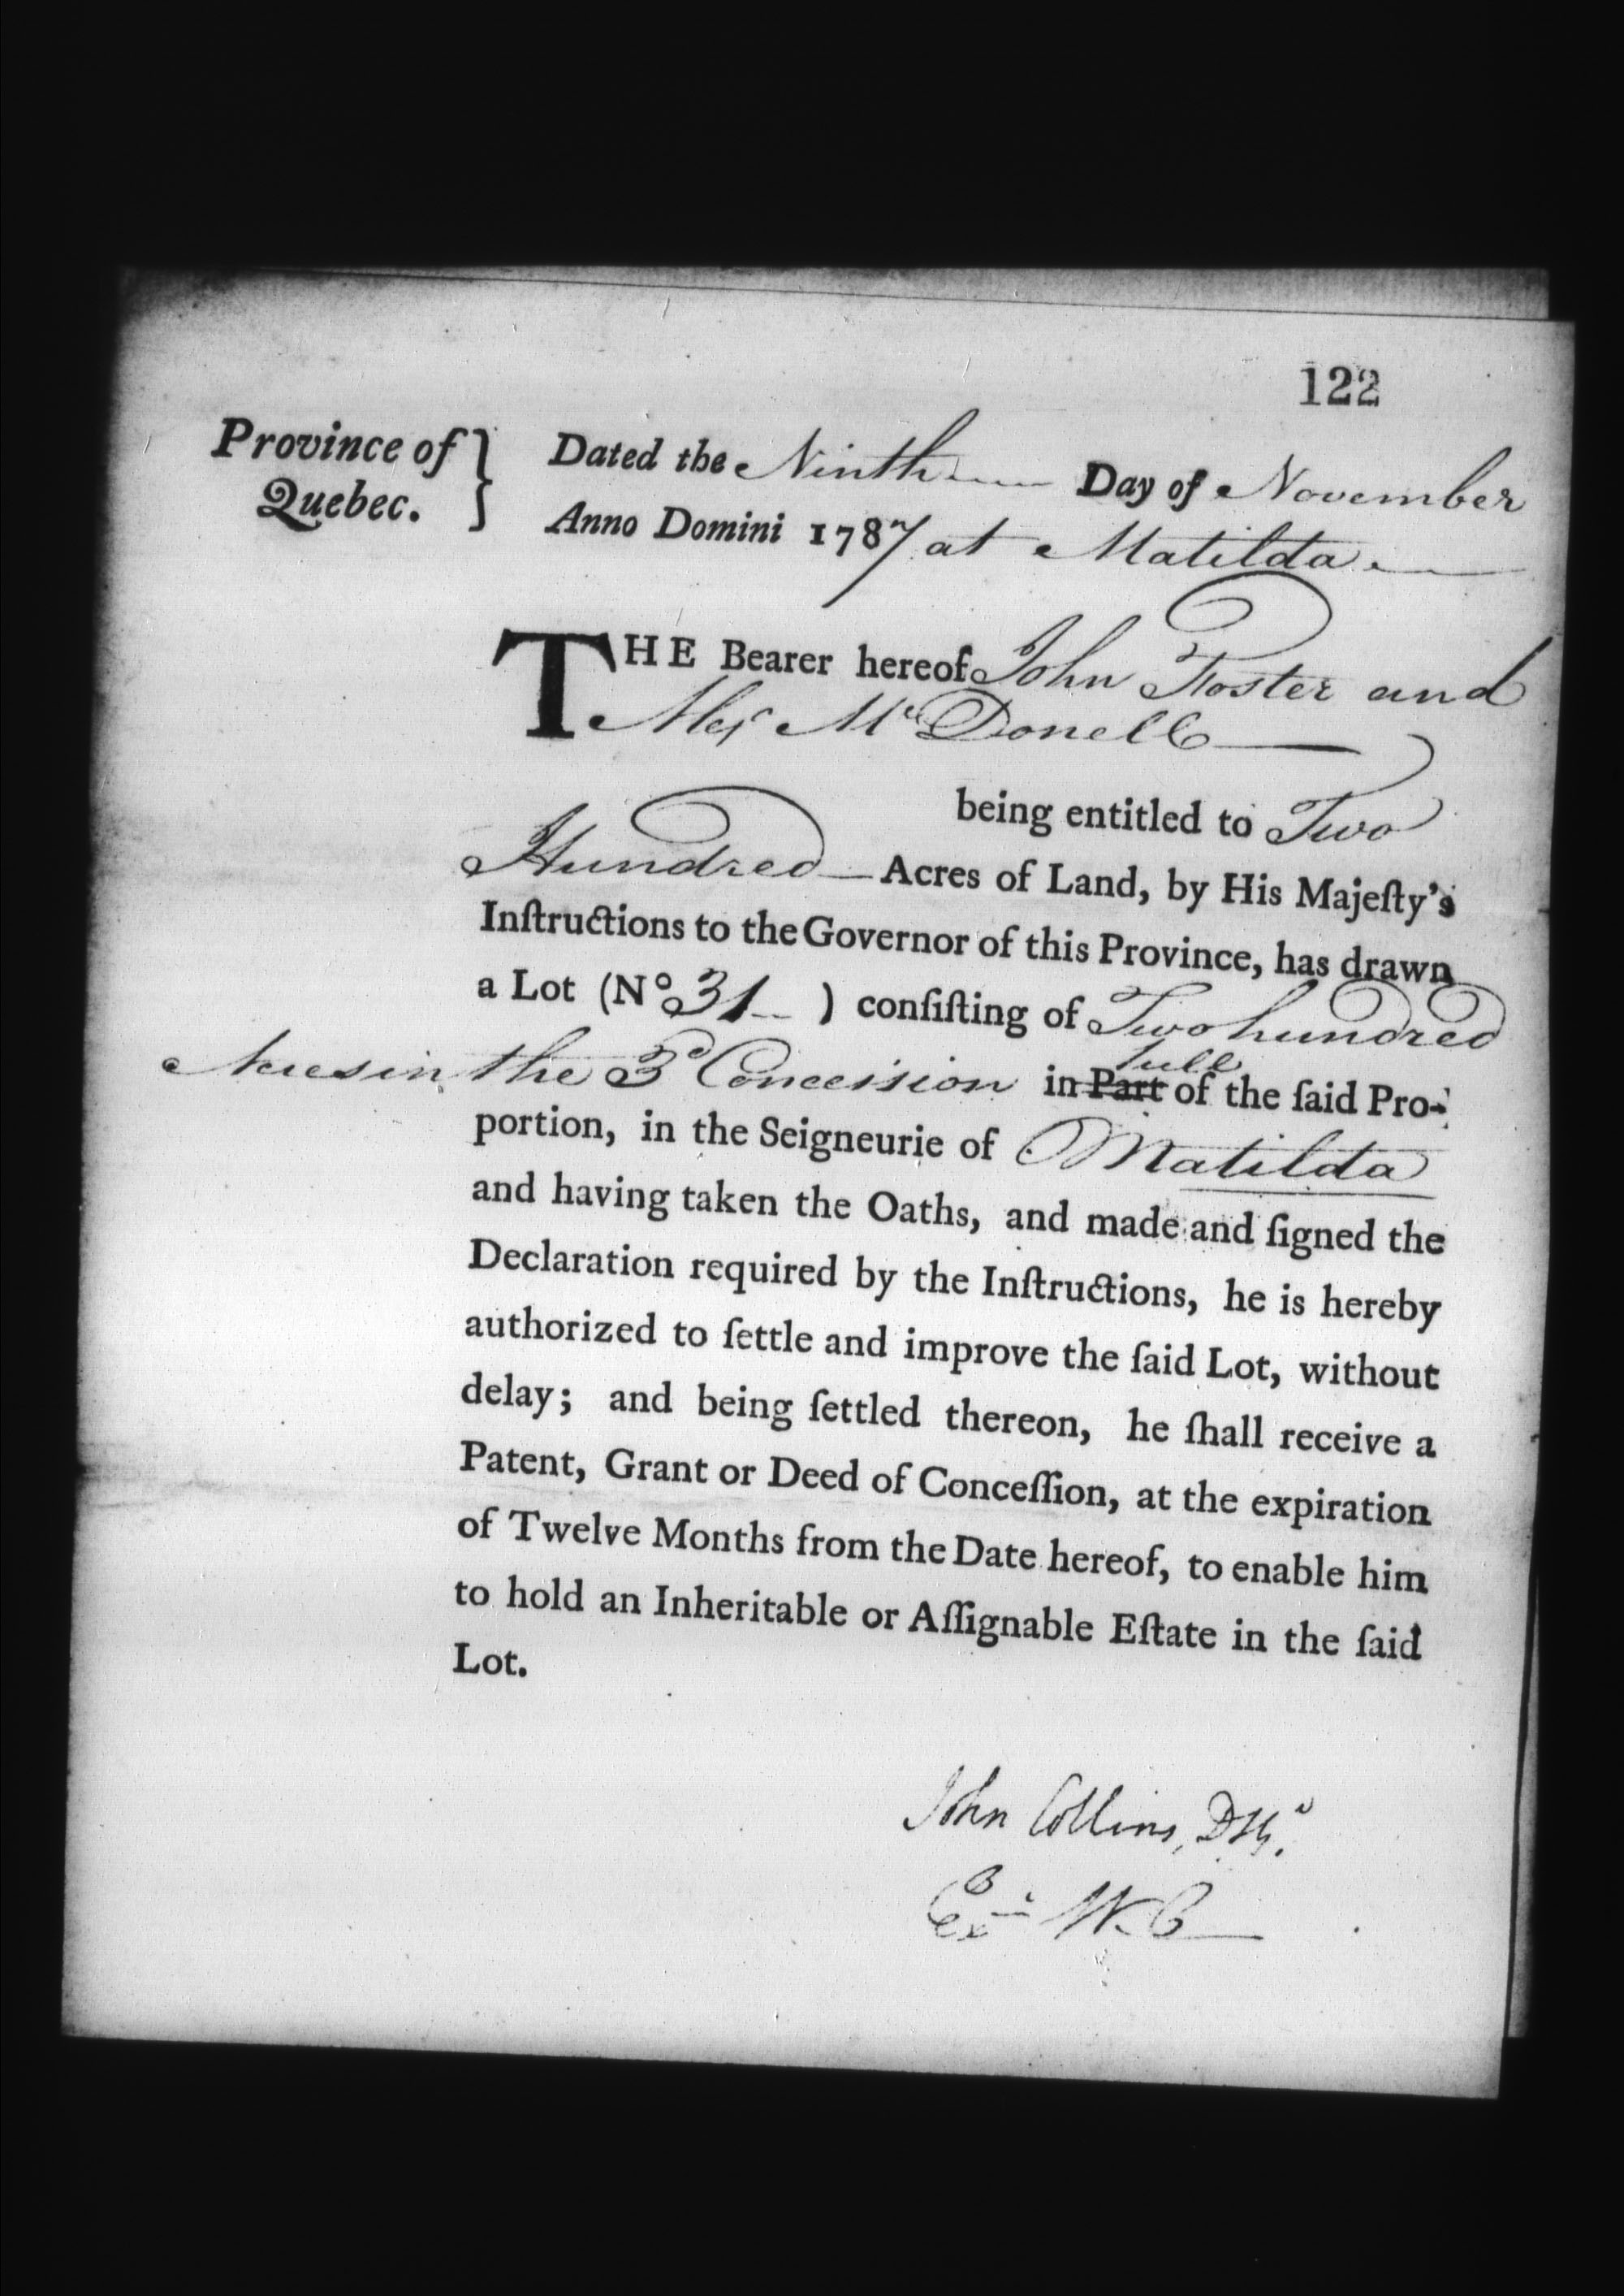 122
Province of } Dated the Ninth Day of November
Quebec. Anno Domini 1787 at Matilda
THE Bearer hereof John Foster and
Alexr McDonell
being entitled to Two
Hundred Acres of Land, by His Majeſty's
Inſtructions to the Governor of this Province, has drawn
a Lot (No 31 ) conſiſting of Two hundred
Acres in the 3d Concession in Part full of the ſaid Pro-
portion, in the Seigneurie of Matilda
and having taken the Oaths, and made and ſigned the
Declaration required by the Inſtructions, he is hereby
authorized to ſettle and improve the ſaid Lot, without
delay; and being ſettled thereon, he ſhall receive a
Patent, Grant or Deed of Conceſſion, at the expiration
of Twelve Months from the Date hereof, to enable him
to hold an Inheritable or Aſſignable Eſtate in the ſaid
Lot.
John Collins,